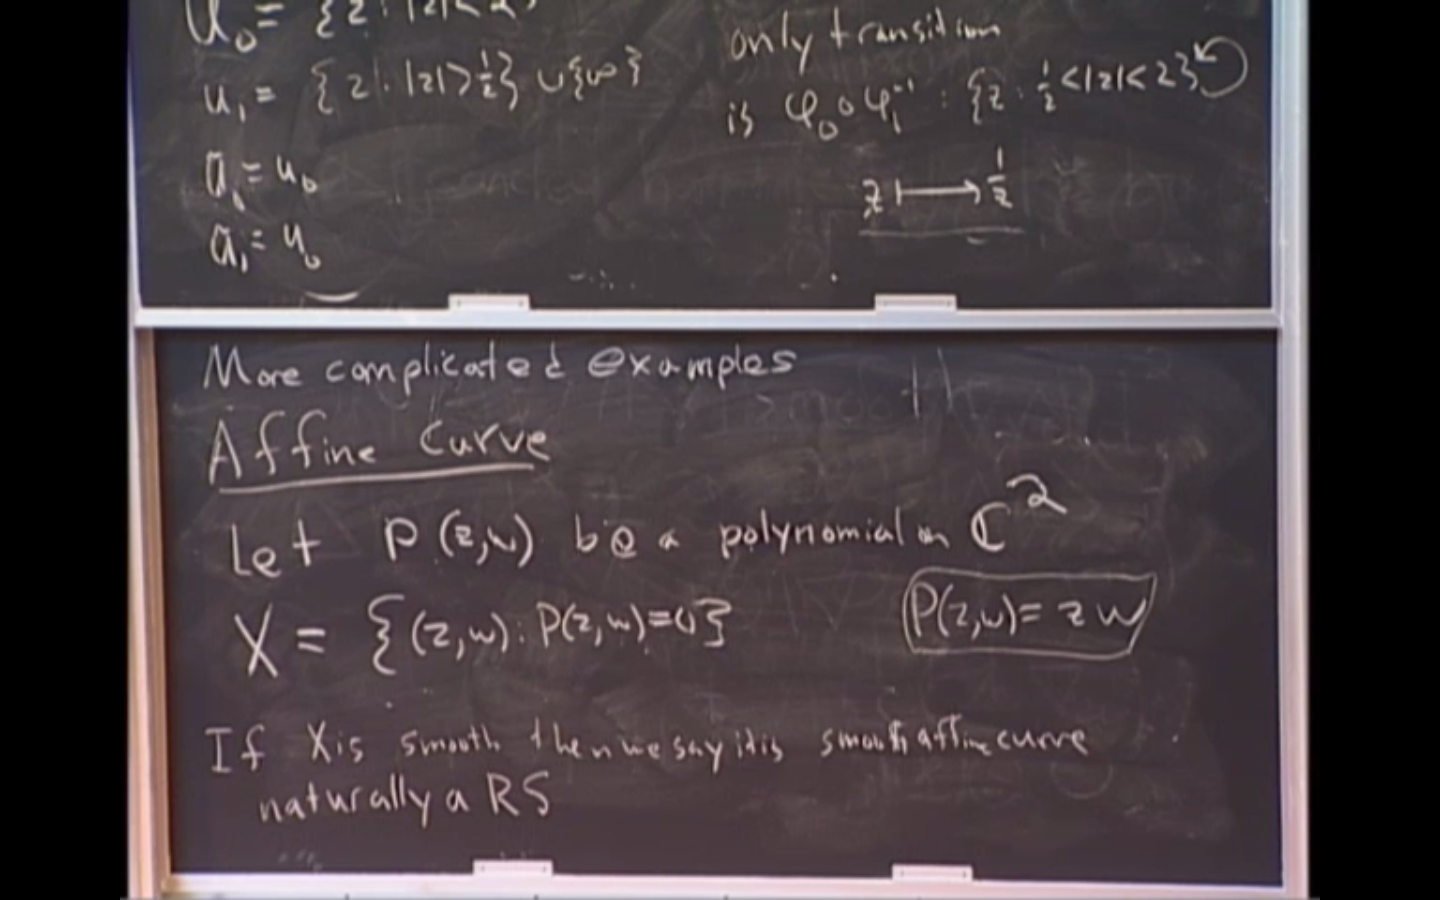 U₀ = {z : |z| < 2}
U₁ = {z : |z| > 1/2} ∪ {∞}
Ũ₁ = U₀
Ũ₁ = U₀
only transition
is φ₀ ∘ φ₁⁻¹ : {z : 1/2 < |z| < 2}
z ⟼ 1/z
More complicated examples
Affine Curve
Let P(z,w) be a polynomial on ℂ²
X = {(z,w) : P(z,w) = 0}
P(z,w) = zw
If X is smooth then we say it is smooth affine curve
naturally a RS